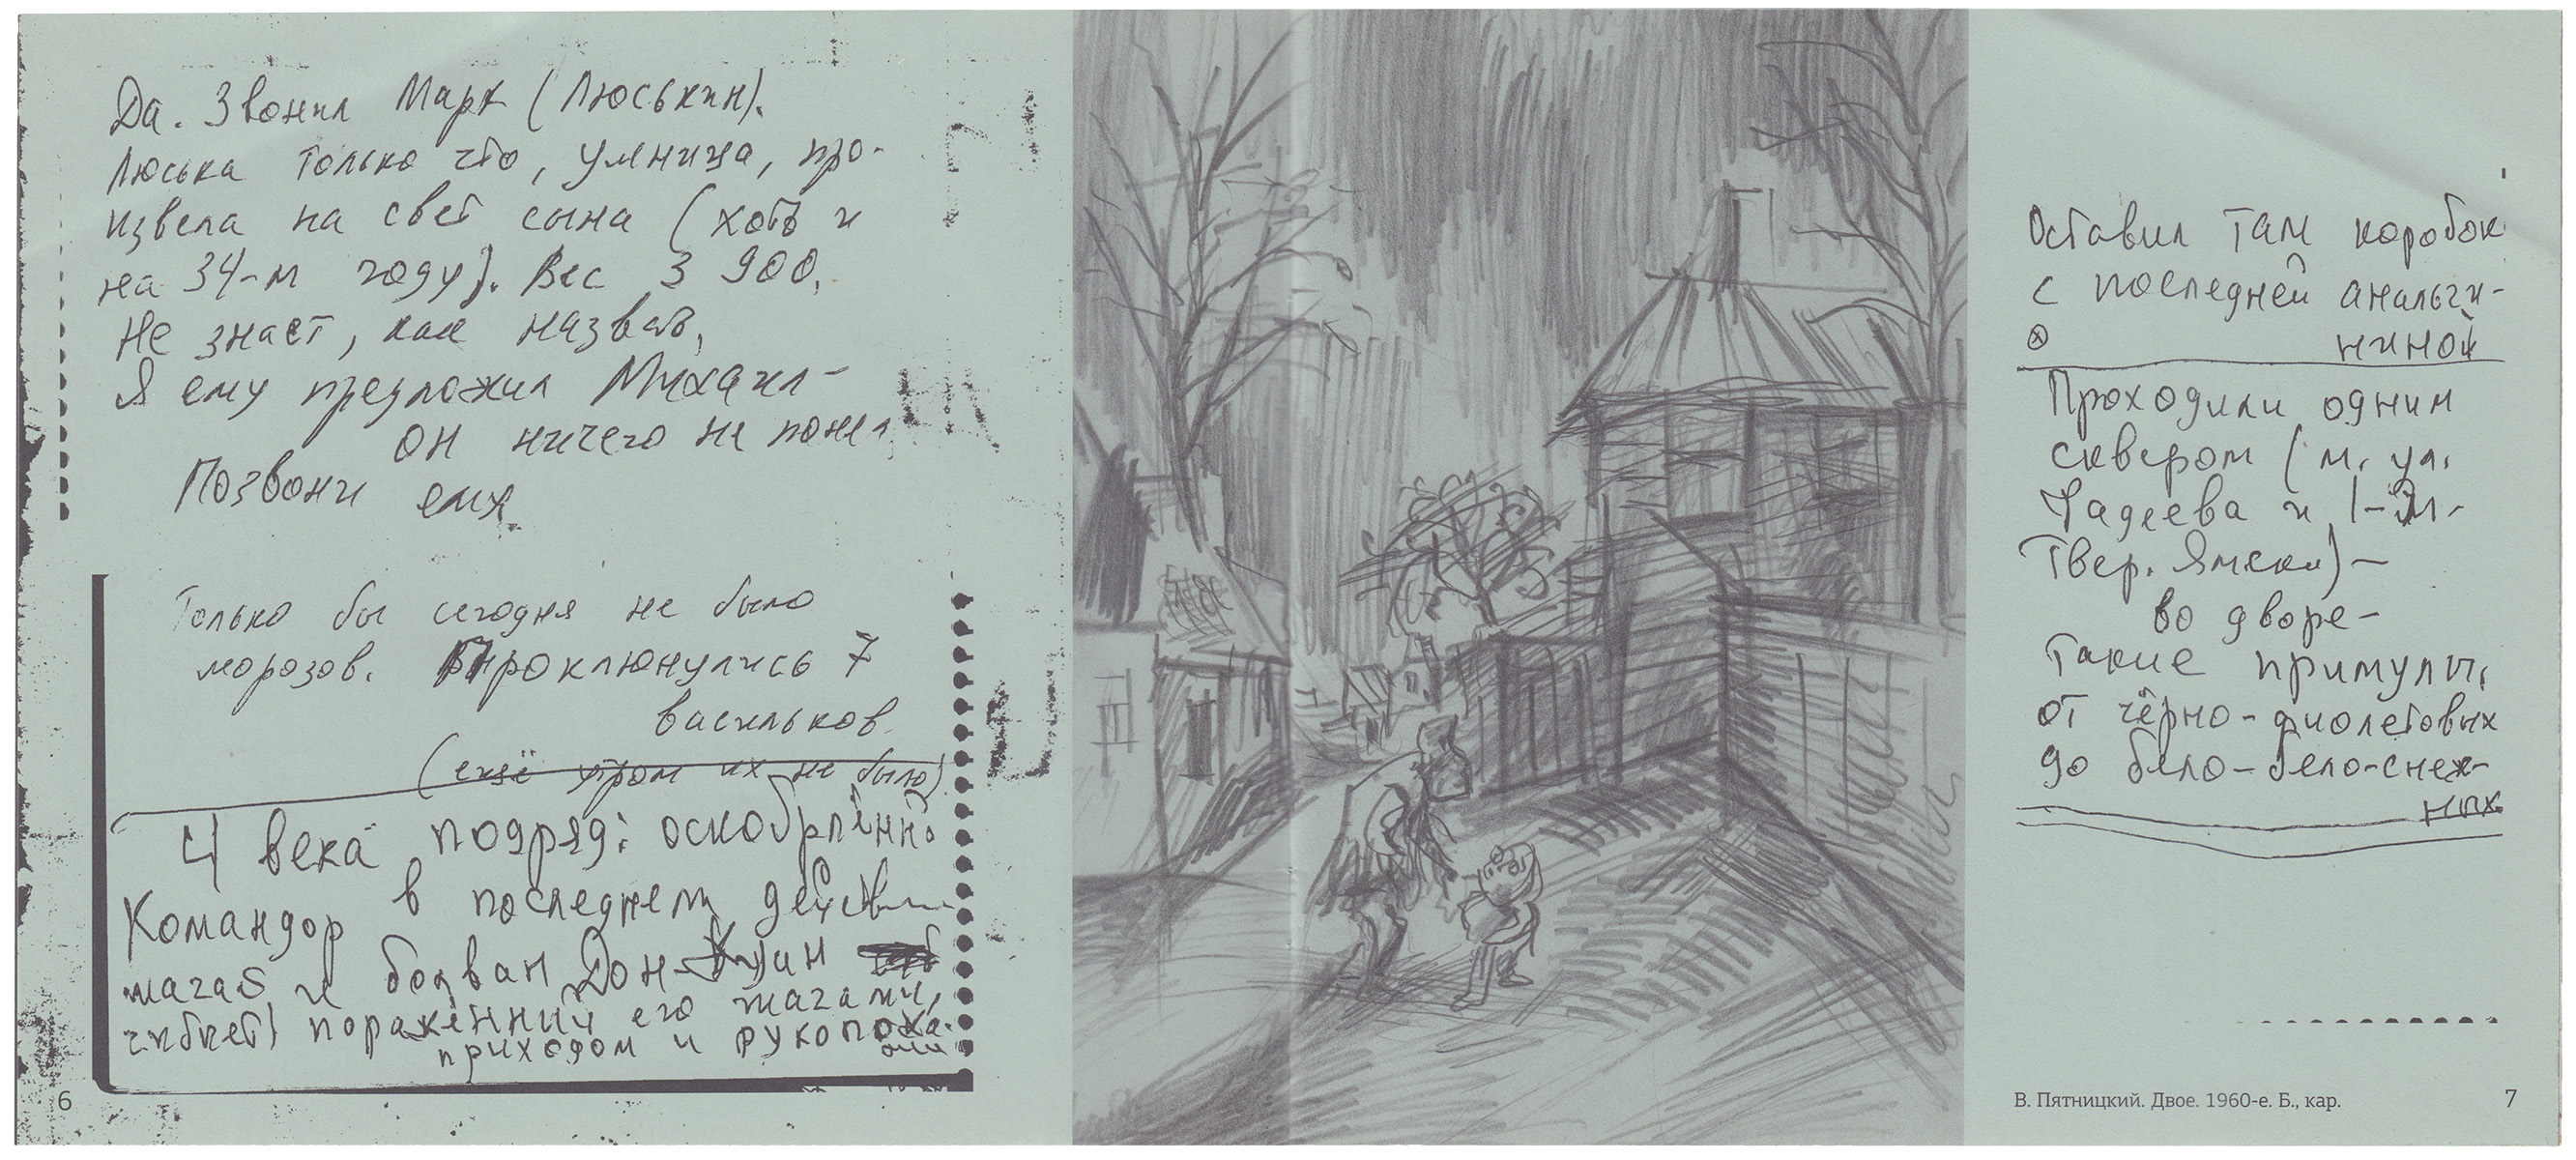 Да. Звонил Марк (Люськин).
Люська только что, умница, про-
извела на свет сына (хоть и
на 34-м году). Вес 3 900.
Не знает, как назвать,
Я ему предложил Михаил –
он ничего не понял
Позвони ему.
Только бы сегодня не было
морозов. Проклюнулись 7
васильков.
(ещё утром их не было)
4 века подряд: оскорблённый
Командор в последнем
шагает, и болван Дон-Жуан
гибнет, поражённый его шагами,
приходом и рукопожа-
6
Оставил там коробок
с последней анальги-
ниной
Проходили одним
сквером (м. ул.
Фадеева и 1-й
Твер. Ямской) –
во дворе –
Такие примулы,
от чёрно-фиолетовых
до бело-бело-снеж-
ных
В. Пятницкий. Двое. 1960-е. Б., кар.
7